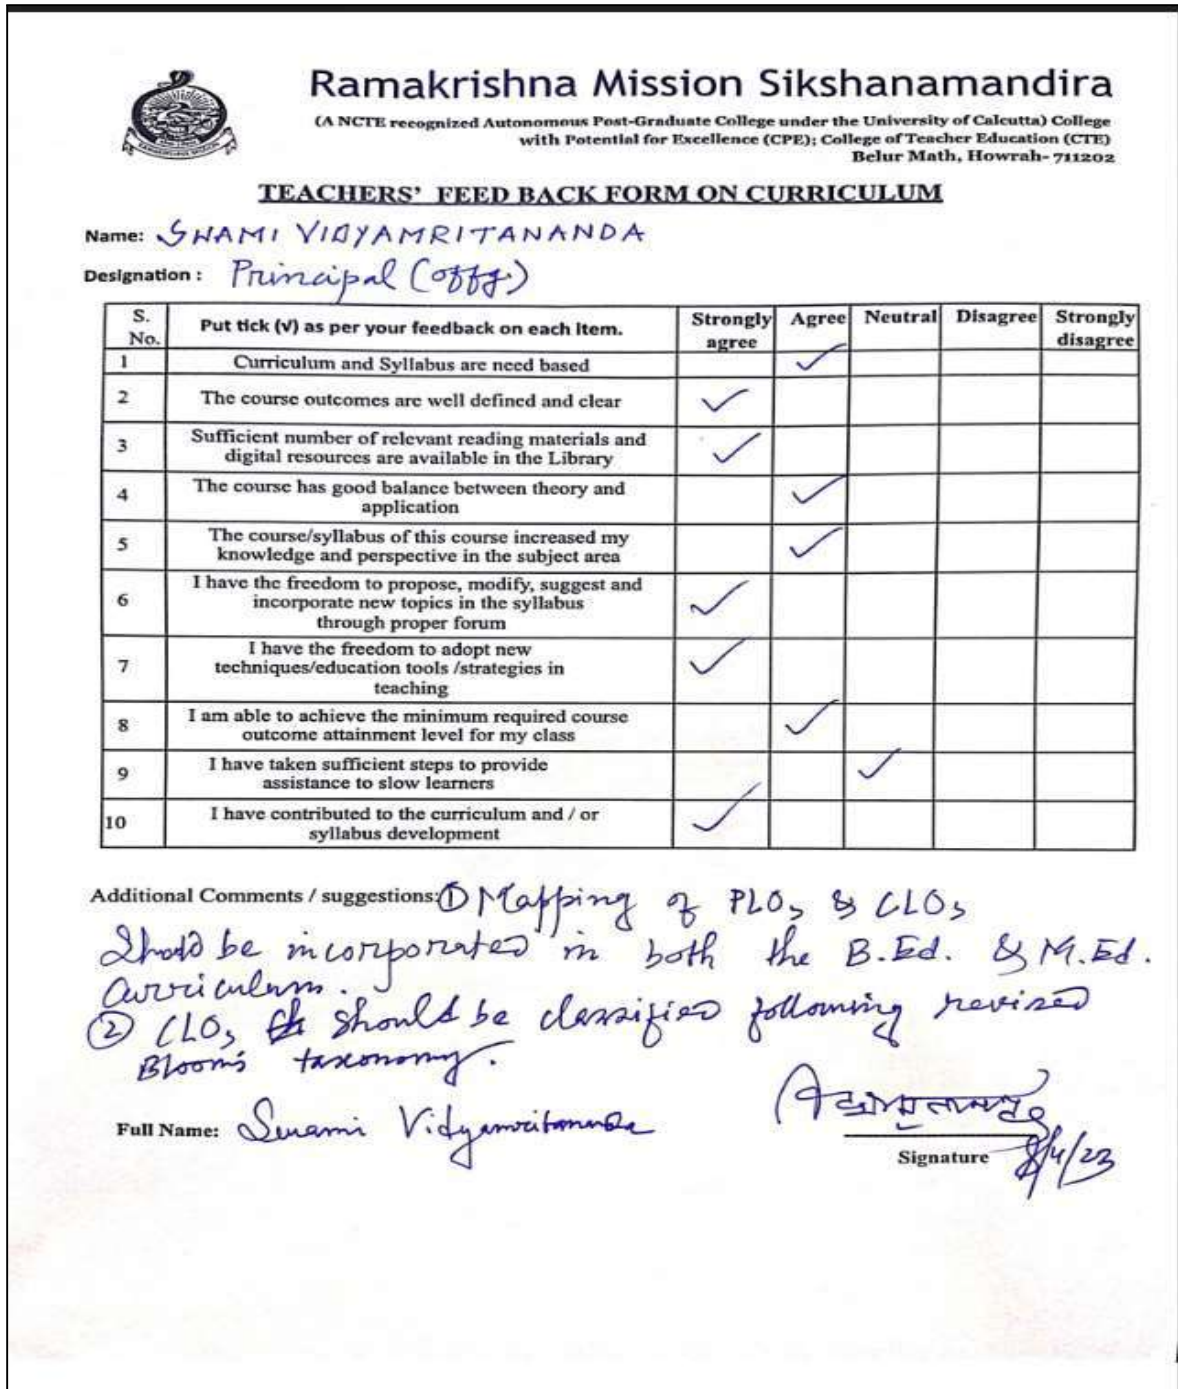 Ramakrishna Mission Sikshanamandira
(A NCTE recognized Autonomous Post-Graduate College under the University of Calcutta) College
with Potential for Excellence (CPE); College of Teacher Education (CTE)
Belur Math, Howrah- 711202
RAMAKRISHNA MISSION
TEACHERS' FEED BACK FORM ON CURRICULUM
Name: SWAMI VIDYAMRITANANDA
Designation : Principal (offg.)
S. No. Put tick (√) as per your feedback on each Item. Strongly agree Agree Neutral Disagree Strongly disagree
1 Curriculum and Syllabus are need based ✓
2 The course outcomes are well defined and clear ✓
3 Sufficient number of relevant reading materials and
digital resources are available in the Library ✓
4 The course has good balance between theory and
application ✓
5 The course/syllabus of this course increased my
knowledge and perspective in the subject area ✓
6 I have the freedom to propose, modify, suggest and
incorporate new topics in the syllabus
through proper forum ✓
7 I have the freedom to adopt new
techniques/education tools /strategies in
teaching ✓
8 I am able to achieve the minimum required course
outcome attainment level for my class ✓
9 I have taken sufficient steps to provide
assistance to slow learners ✓
10 I have contributed to the curriculum and / or
syllabus development ✓
Additional Comments / suggestions: ① Mapping of PLOs & CLOs
Should be incorporated in both the B.Ed. & M.Ed.
Curriculum.
② CLOs should be classified following revised
Bloom's taxonomy.
Full Name: Swami Vidyamritananda
Signature
/4/23